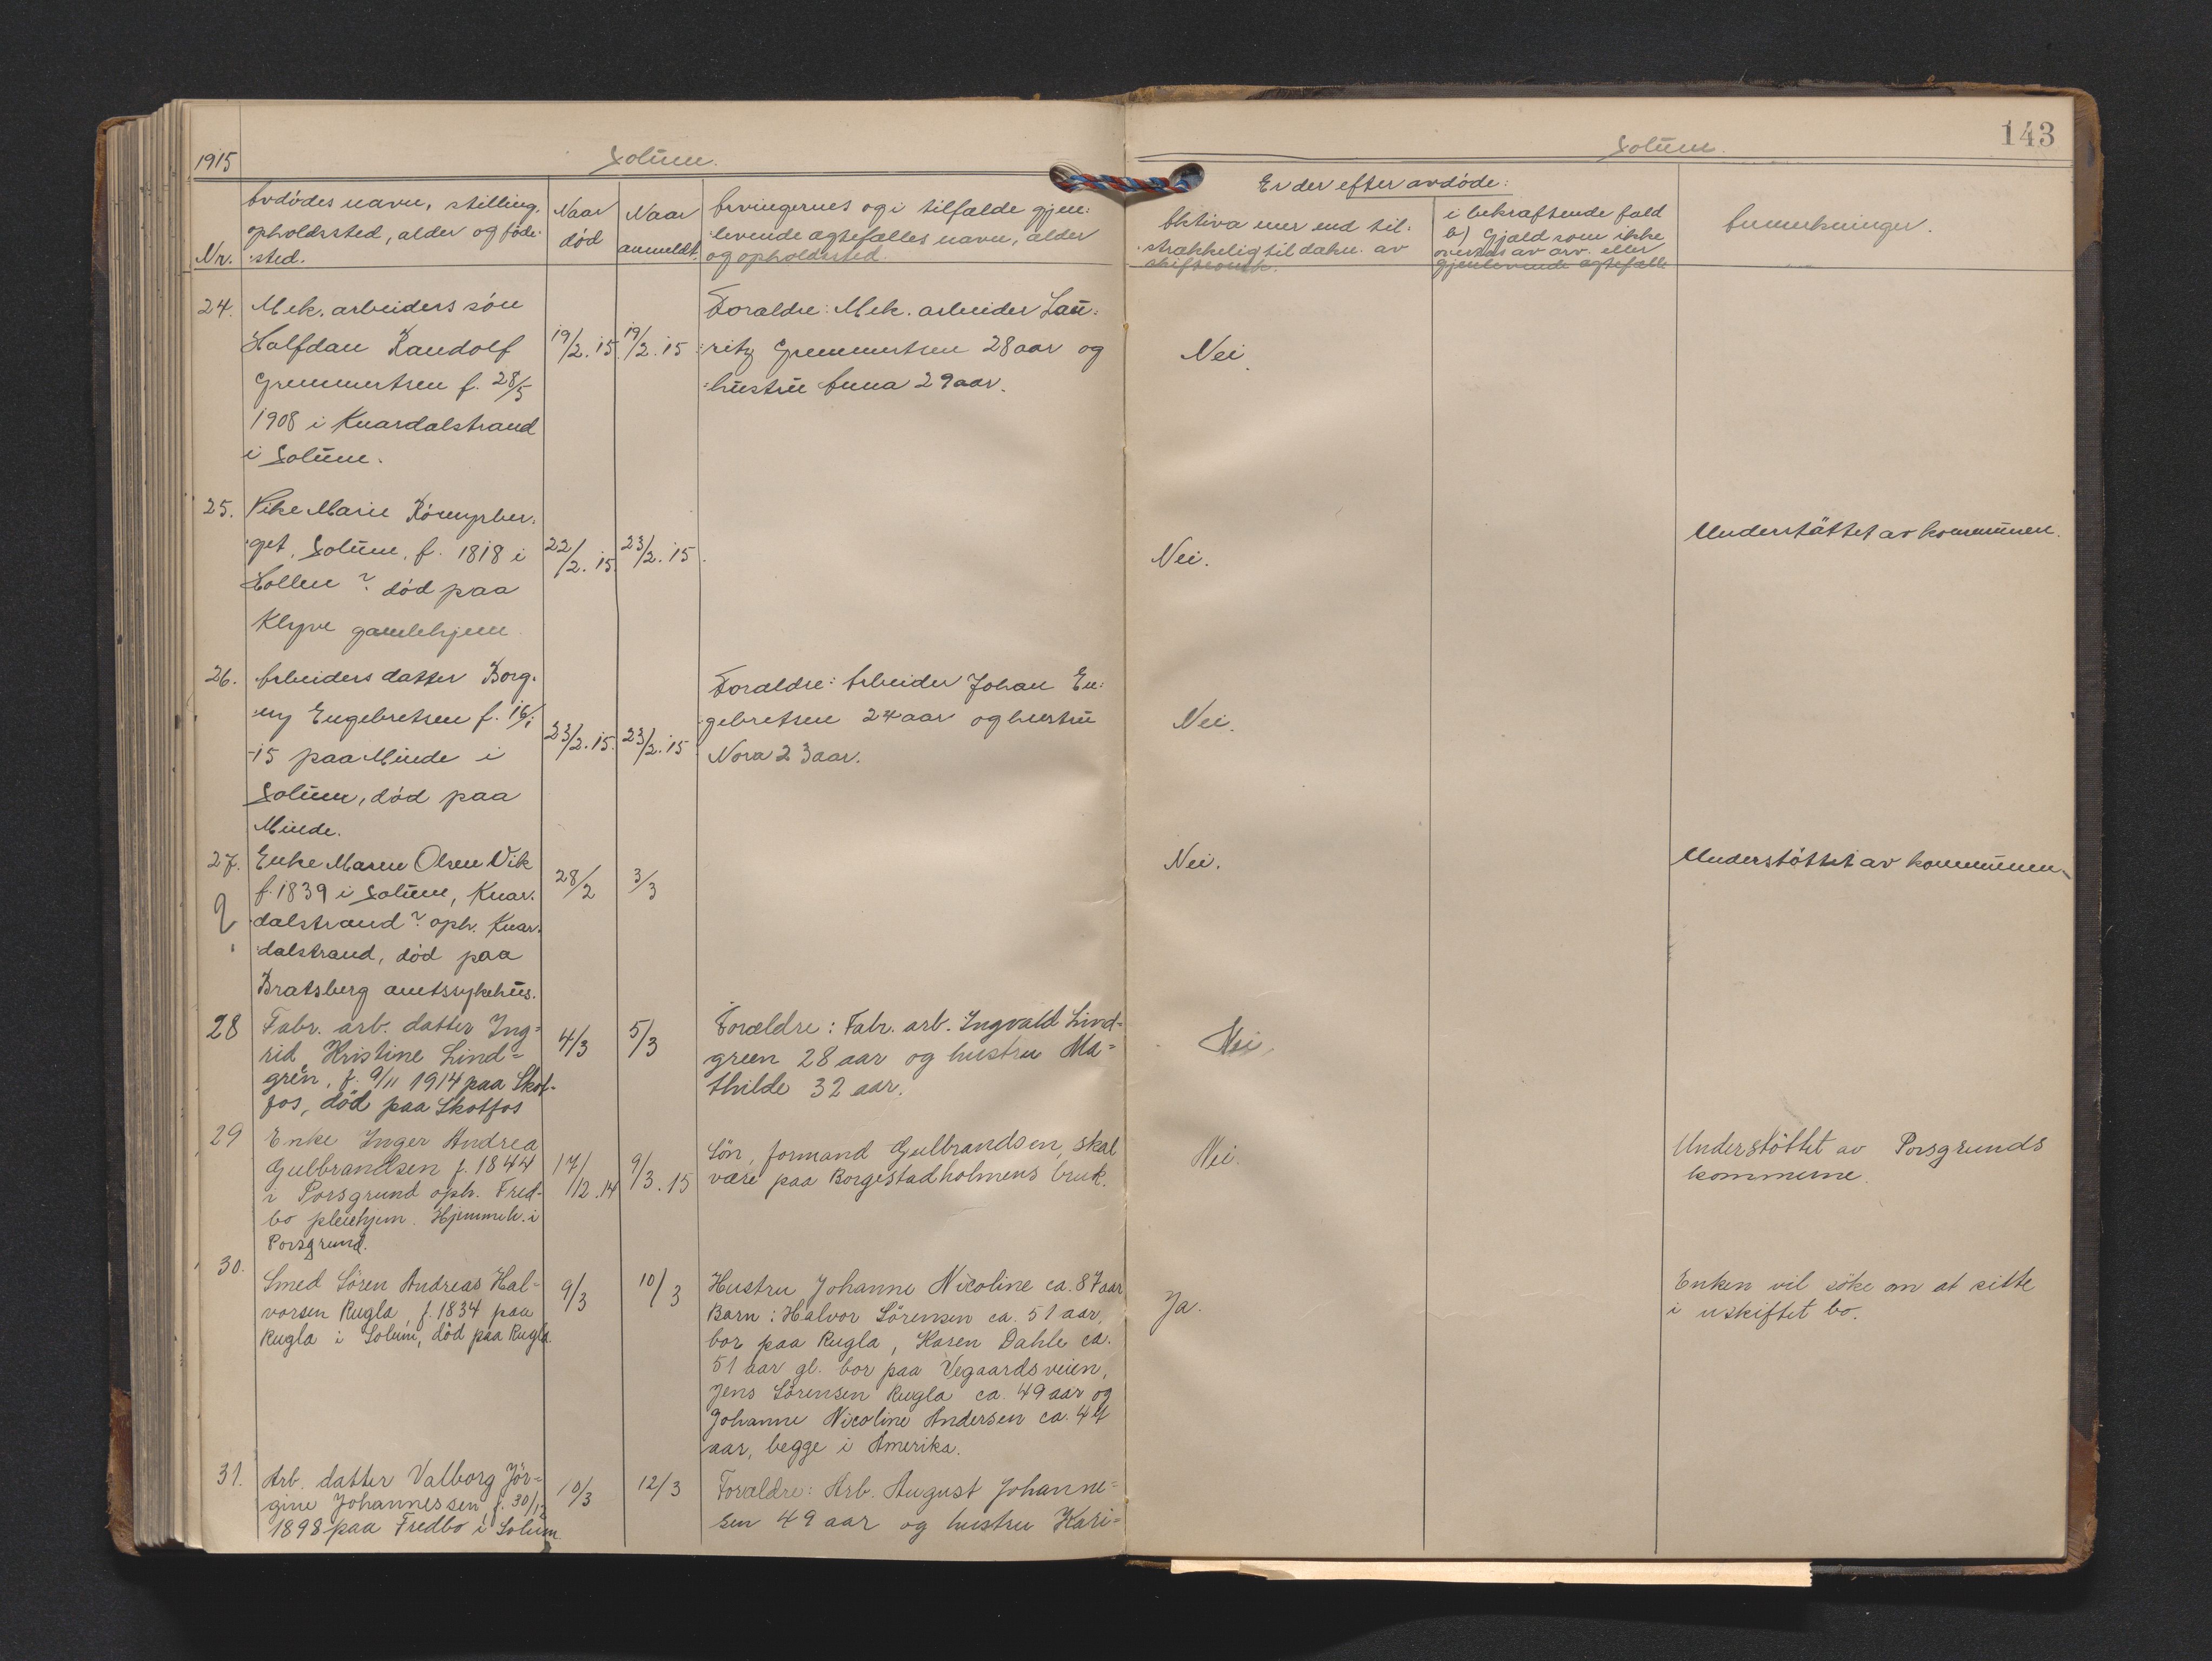 1915
Solum.
Nr.
Avdødes navn, stilling,
opholdssted, alder og føde-
sted.
Naar
død
Naar
anmeldt.
Arvingernes og i tilfælde gjen:
levende ægtefælles navn, alder
og opholdssted.
24.
Mek. arbeiders søn
Halfdan Randolf
Gremmertsen f. 28/5
1908 i Knardalstrand
i Solum.
19/2. 15.
19/2. 15
Forældre: Mek. arbeider Lau:
ritz Gremmertsen 28 aar og
hustru Anna 29 aar.
25.
Pike Marie Rönnyber:
get, Solum, f. 1818 i
Hollen? død paa
Klyve gamlehjem
22/2. 15.
23/2. 15.
26.
Arbeiders datter Borg:
ny Engebretsen f. 16/1
-15 paa Minde i
Solum, død paa
Minde.
23/2. 15.
23/2. 15
Forældre: Arbeider Johan En:
gebretsen 24 aar og hustru
Nora 23 aar.
27.
?
Enke Maren Olsen Vik
f. 1839 i Solum, Knar:
dalstrand? oph. Knar:
dalstrand, død paa
Bratsberg amtssykehus.
28/2
3/3
28
Fabr. arb. datter Ing=
rid Kristine Lind=
gren, f. 9/11 1914 paa Skot-
fos, død paa Skotfos
4/3
5/3
Forældre: Fabr. arb. Ingvald Lind=
green 28 aar og hustru Ma=
thilde 32 aar.
29
Enke Inger Andrea
Gulbrandsen f. 1844
i Porsgrund oph. Fred-
bo pleiehjem. Hjemmeh. i
Porsgrund.
17/12. 14
9/3. 15
Sön, formand Gulbrandsen, skal
være paa Borgestadholmens bruk.
30.
Smed Sören Andreas Hal=
vorsen Rugla, f. 1834 paa
Rugla i Solum, död paa Rugla
9/3
10/3
Hustru Johanne Nicoline ca. 87 aar
Barn: Halvor Sörensen ca. 51 aar,
bor paa Rugla, Karen Dahle ca.
51 aar gl. bor paa Vegaardsveien,
Jens Sörensen Rugla ca. 49 aar og
Johanne Nicoline Andersen ca. 44
aar, begge i Amerika.
31.
Arb. datter Valborg Jör=
gine Johannessen f. 30/12
1898 paa Fredbo i Solum
10/3
12/3
Forældre: Arb. August Johanne=
sen 49 aar og hustru Kari=
143
Solum.
Er der efter avdøde:
Aktiva mer end til:
strækkelig til dækn. av
skifteomk.
i bekræftende fald
b) Gjæld som ikke
overtas av arv. eller
gjenlevende ægtefælle
Anmerkninger.
Nei.
Nei.
Understøttet av kommunen.
Nei.
Nei.
Understøttet av kommunen.
Nei
Nei.
Understöttet av Porsgrunds
kommune.
Ja.
Enken vil söke om at sitte
i uskiftet bo.